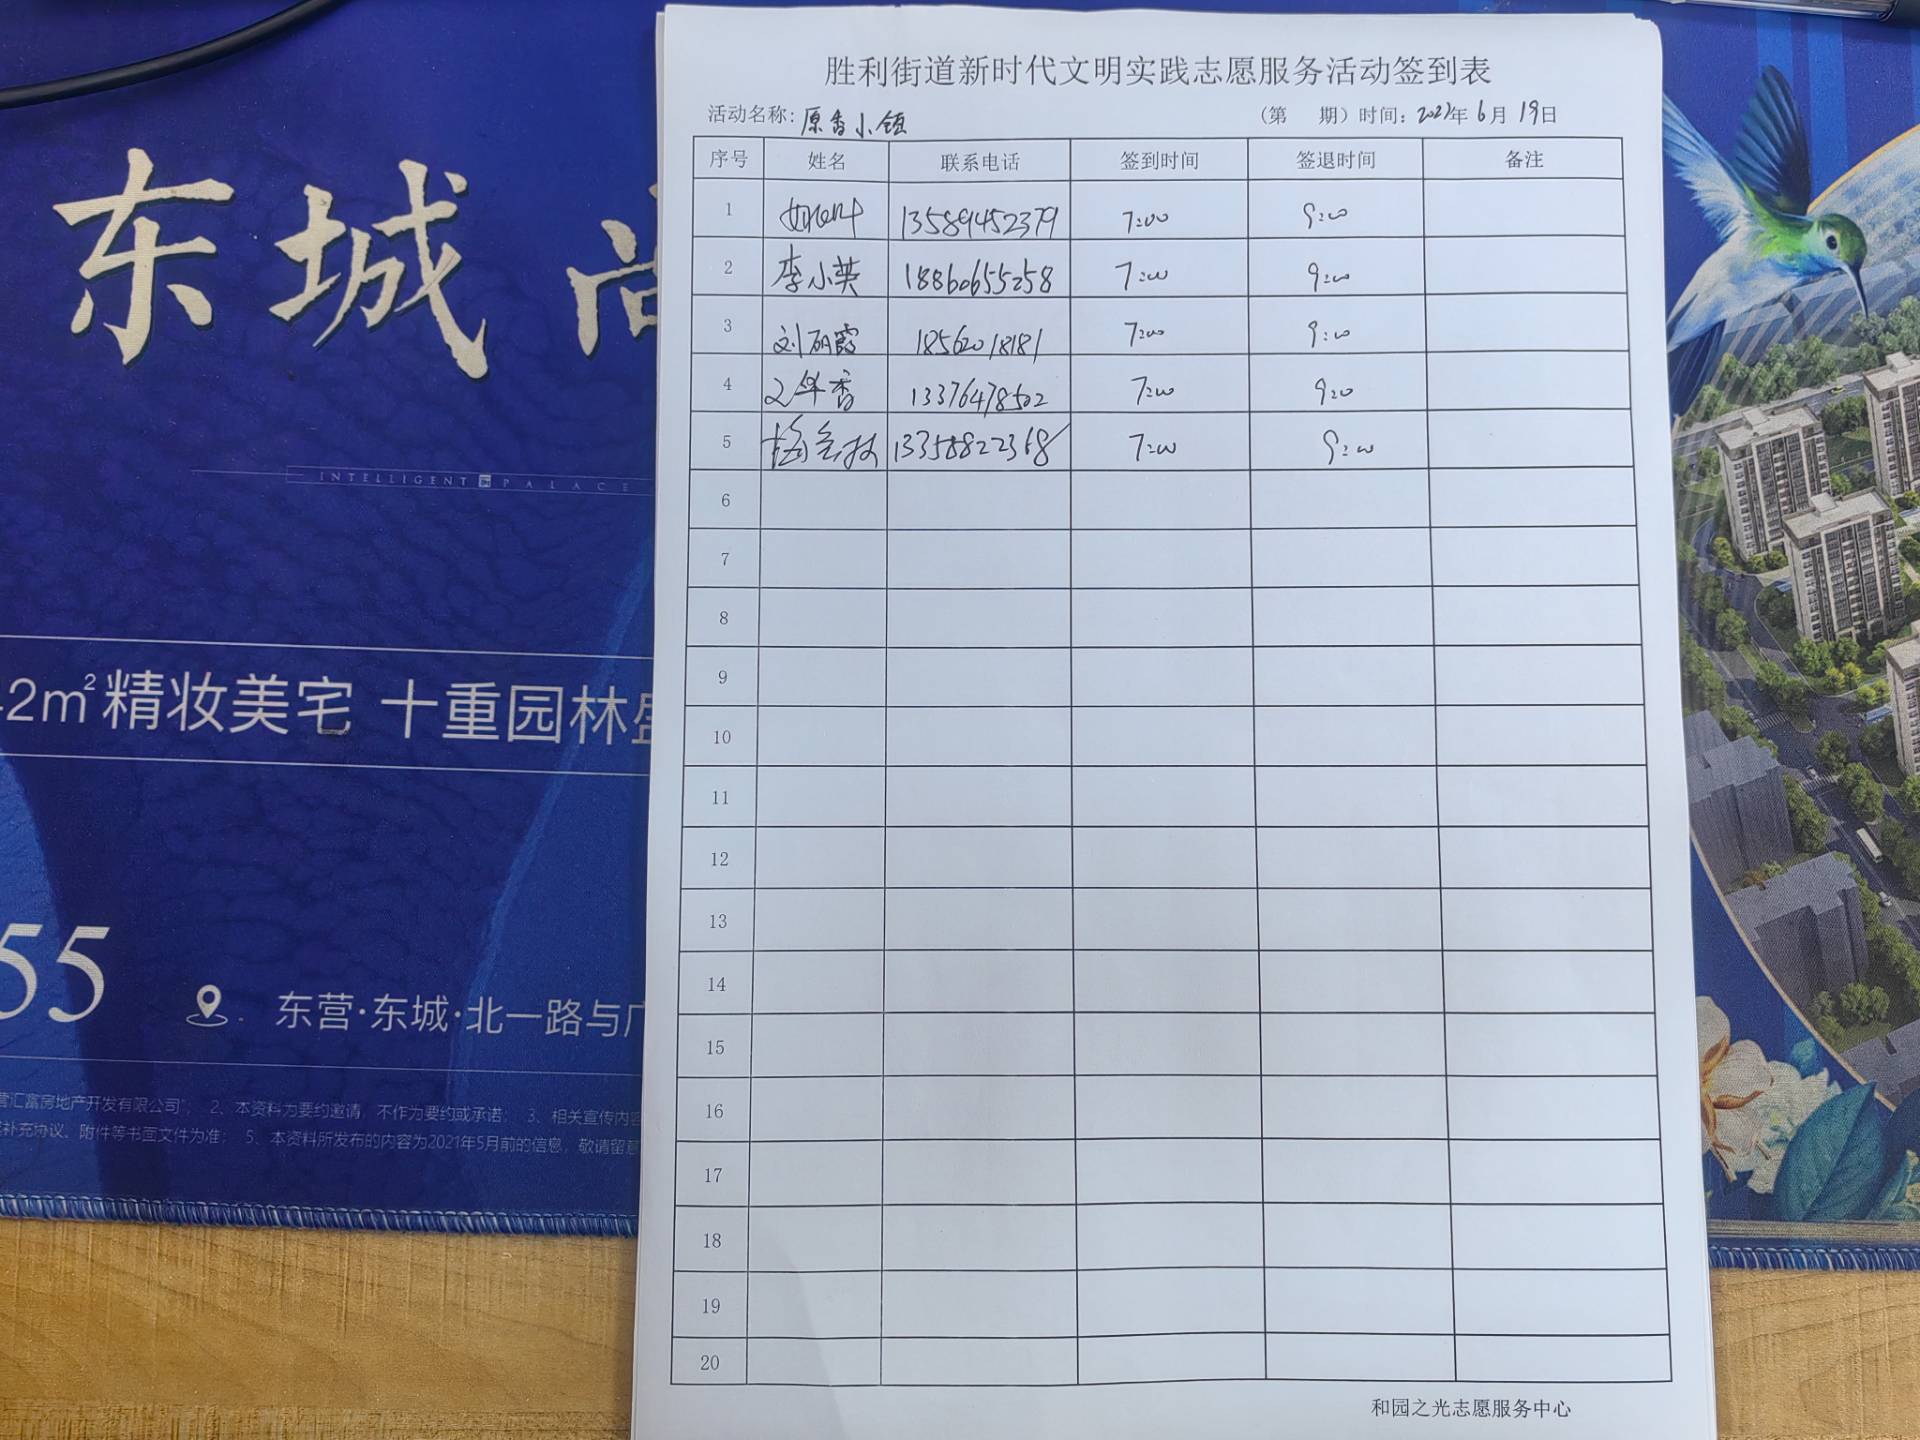 胜利街道新时代文明实践志愿服务活动签到表
活动名称：原香小镇 （第 期）时间：2023年6月19日
序号 姓名 联系电话 签到时间 签退时间 备注
1 13589452379 7:00 9:00
2 李小英 18860655258 7:00 9:00
3 刘丽霞 18562018181 7:00 9:00
4 香 13376478502 7:00 9:00
5 13358822368 7:00 9:00
6
7
8
9
10
11
12
13
14
15
16
17
18
19
20
和园之光志愿服务中心
东城
INTELLIGENT PALACE
2m²精妆美宅 十重园林
55
东营·东城·北一路与广
营汇富房地产开发有限公司"； 2、本资料为要约邀请，不作为要约或承诺； 3、相关宣传内容
补充协议、附件等书面文件为准； 5、本资料所发布的内容为2021年5月前的信息，敬请留意